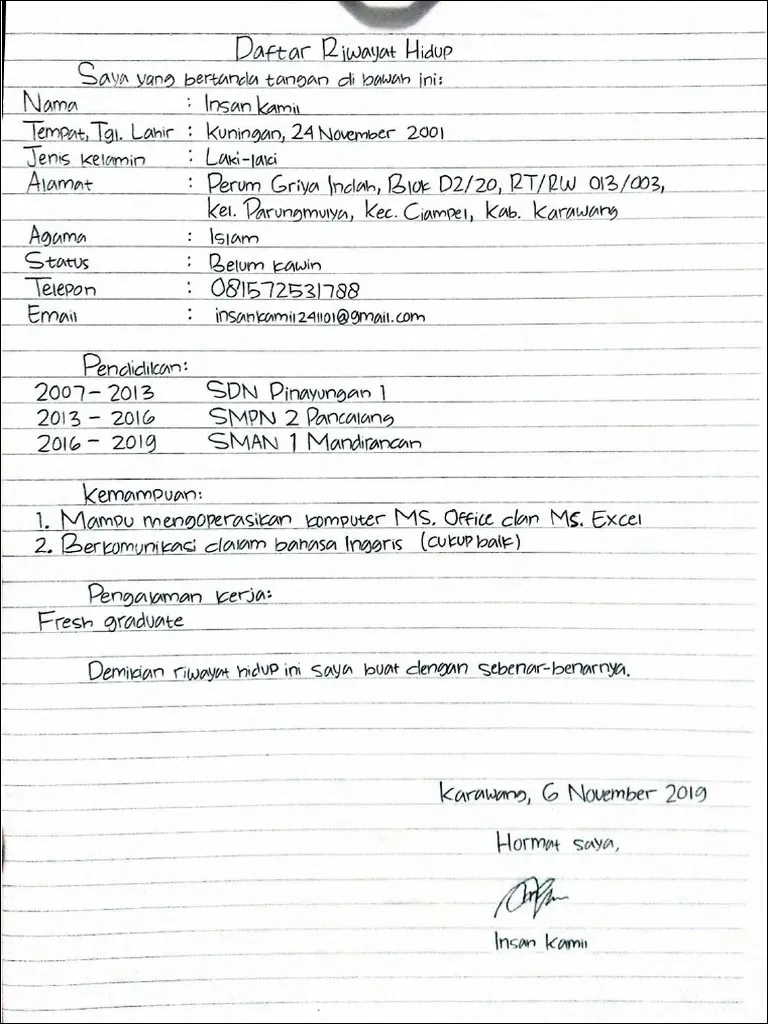 Daftar Riwayat Hidup
Saya yang bertanda tangan di bawah ini:
Nama : Insan Kamil
Tempat, Tgl. Lahir : Kuningan, 24 November 2001
Jenis Kelamin : Laki-laki
Alamat : Perum Griya Indah, Blok D2/20, RT/RW 013/003,
Kel. Parungmulya, Kec. Ciampel, Kab. Karawang
Agama : Islam
Status : Belum kawin
Telepon : 081572531788
Email : insankamil241101@gmail.com
Pendidikan:
2007 - 2013 SDN Pinayungan 1
2013 - 2016 SMPN 2 Pancalang
2016 - 2019 SMAN 1 Mandirancan
Kemampuan:
1. Mampu mengoperasikan komputer MS. Office dan MS. Excel
2. Berkomunikasi dalam bahasa Inggris (cukup baik)
Pengalaman kerja:
Fresh graduate
Demikian riwayat hidup ini saya buat dengan sebenar-benarnya.
Karawang, 6 November 2019
Hormat saya,
Insan Kamil